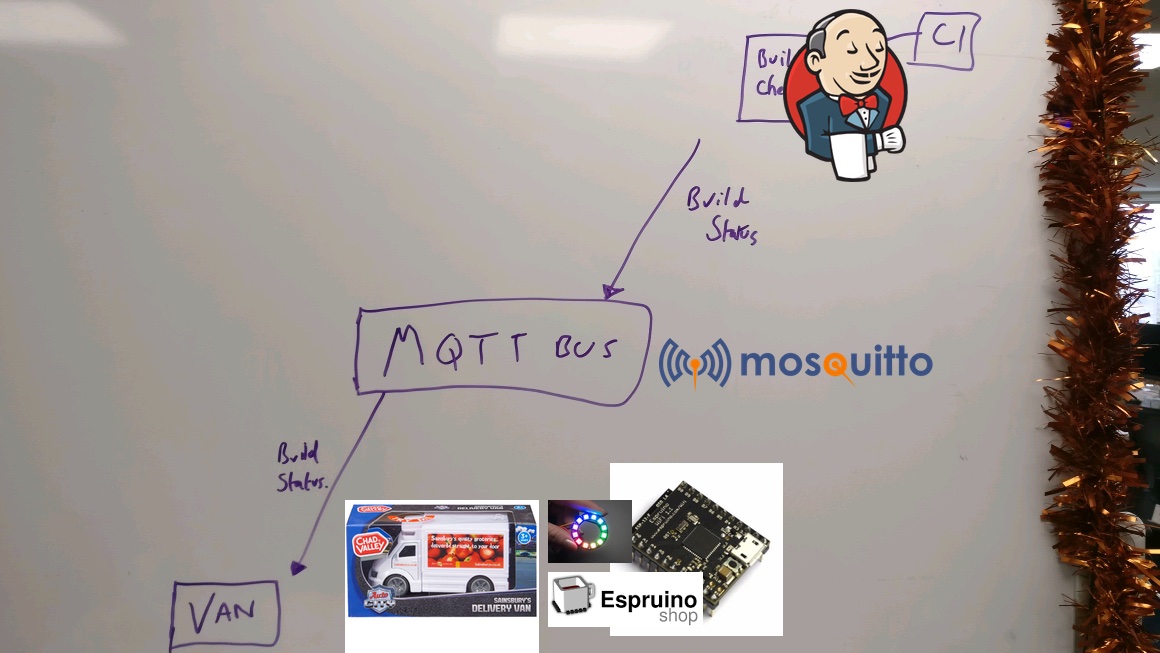 CI
Build
Status
MQTT BUS
mosquitto
Build
Status.
VAN
CHAD VALLEY
Sainsbury's quality groceries,
delivered straight to your door
3+
Auto
CITY
SAINSBURY'S
DELIVERY VAN
Espruino
shop